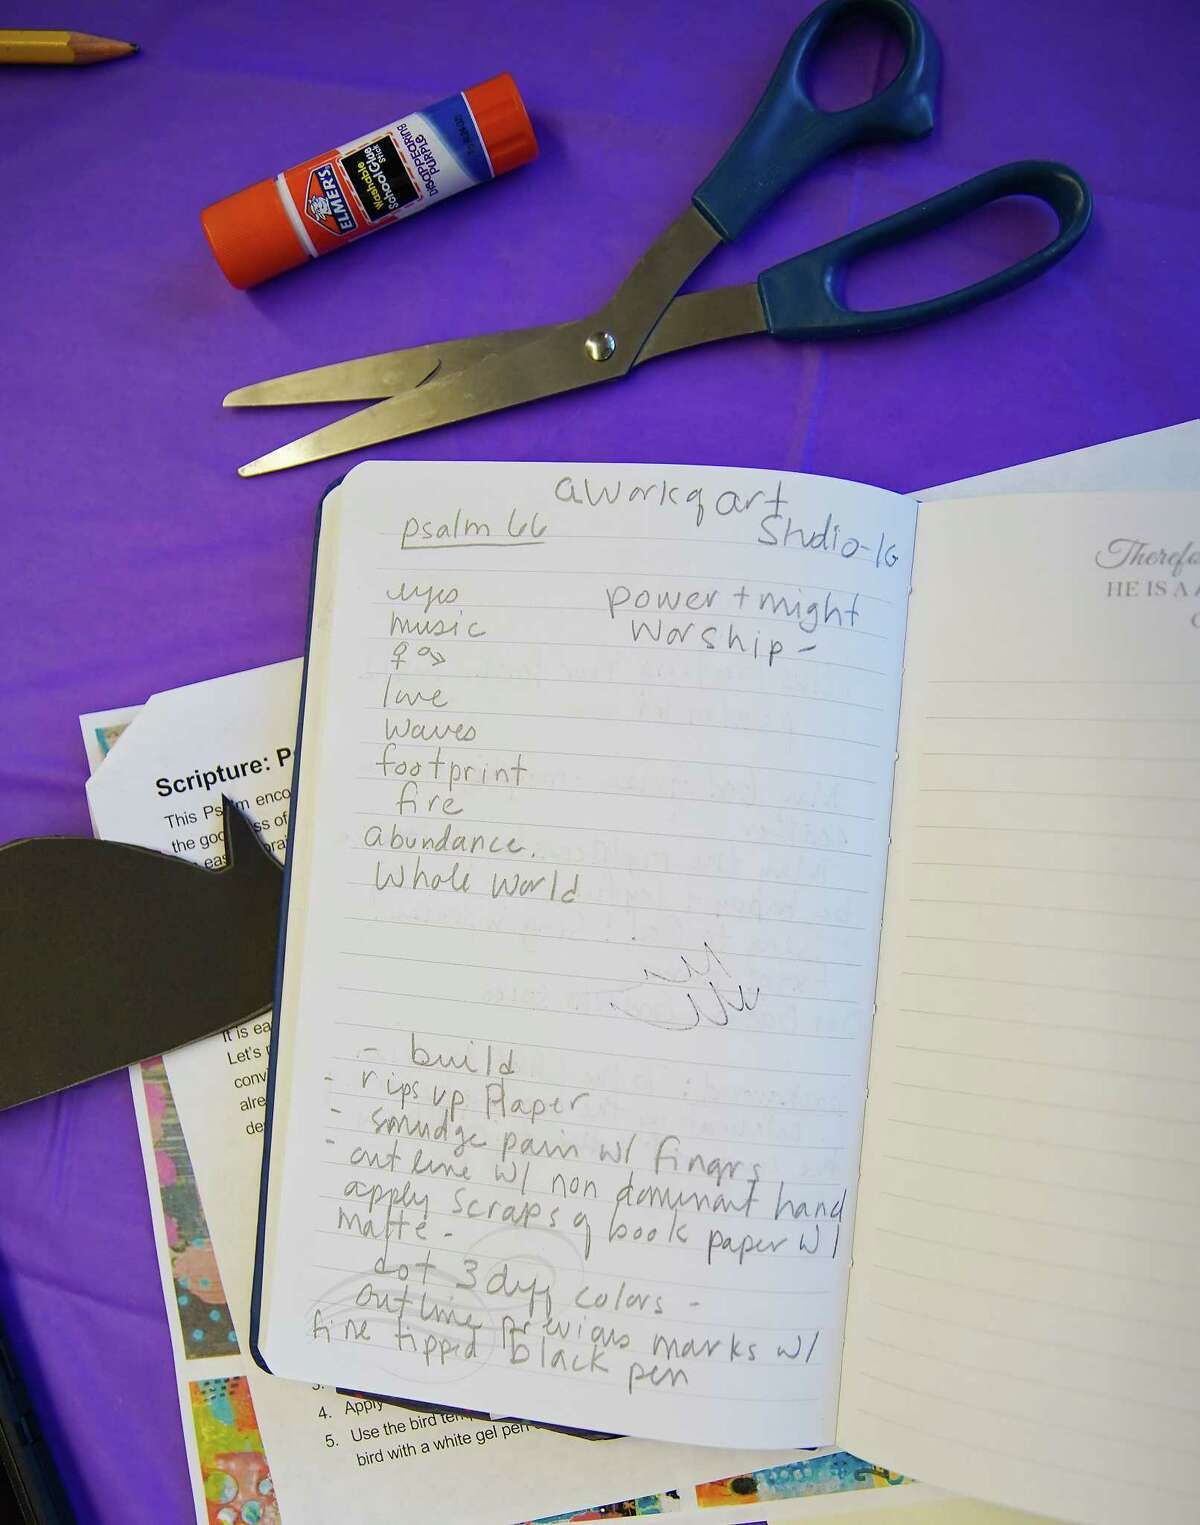 ELMER'S
Washable
School Glue
Stick
DISAPPEARING
PURPLE
aworkofart
Studio-IG
psalm 66
eyes
music
love
waves
footprint
fire
abundance.
Whole world
power + might
worship -
- build
- rips up Paper
- smudge pain w/ fingrs
- outline w/ non dominant hand
apply scraps of book paper w/
matte -
dot 3 dyff colors -
outline previous marks w/
fine tipped black pen
Therefo
HE IS A
Scripture: Ps
This Psalm enco
the goodness of
It is ea
Let's
convi
alre
de
3.
4. Apply
5. Use the bird tem
bird with a white gel pen